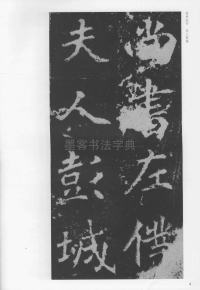 尚書左僕
夫人彭
城
墨客书法字典